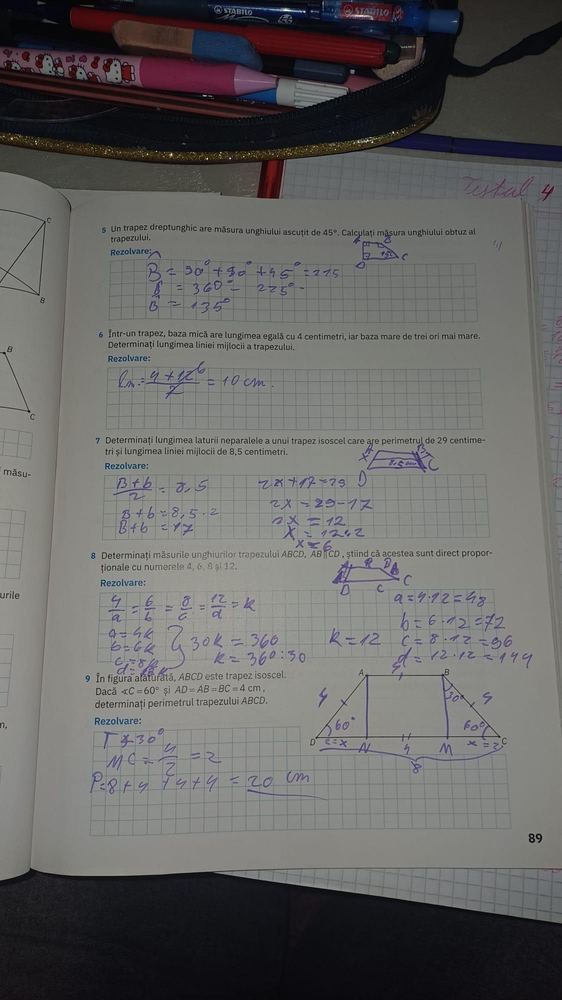 STABILO
STABILO
Testul 4
5 Un trapez dreptunghic are măsura unghiului ascuțit de 45°. Calculați măsura unghiului obtuz al
trapezului.
Rezolvare:
B = 90° + 90° + 45° = 225
B = 360° - 225°
B = 135°
A B
45°
D C
6 Într-un trapez, baza mică are lungimea egală cu 4 centimetri, iar baza mare de trei ori mai mare.
Determinați lungimea liniei mijlocii a trapezului.
Rezolvare:
lm = 4+12 6 / 2 = 10 cm.
7 Determinați lungimea laturii neparalele a unui trapez isoscel care are perimetrul de 29 centime-
tri și lungimea liniei mijlocii de 8,5 centimetri.
Rezolvare:
A B
8,5 cm
D C
B+b / 2 = 8,5
B+b = 8,5 · 2
B+b = 17
2x+17=29
2x = 29-17
2x = 12
X = 12:2
x = 6
8 Determinați măsurile unghiurilor trapezului ABCD, AB∥CD, știind că acestea sunt direct propor-
ționale cu numerele 4, 6, 8 și 12.
Rezolvare:
D C
4/a = 6/b = 8/c = 12/d = k
a=4k
b=6k
c=8k
d=12k
30k = 360
k = 360:30
k = 12
a=4·12=48
b=6·12=72
c=8·12=96
d=12·12=144
9 În figura alăturată, ABCD este trapez isoscel.
Dacă ∢C=60° și AD=AB=BC=4 cm,
determinați perimetrul trapezului ABCD.
Rezolvare:
T∢30°
MC = 4/2 = 2
P=8+4+4+4 = 20 cm
A 4 B
4 30° 4
60° 60°
D 2=x N 4 M x=2 C
8
89
C
B
B
C
măsu-
urile
m,